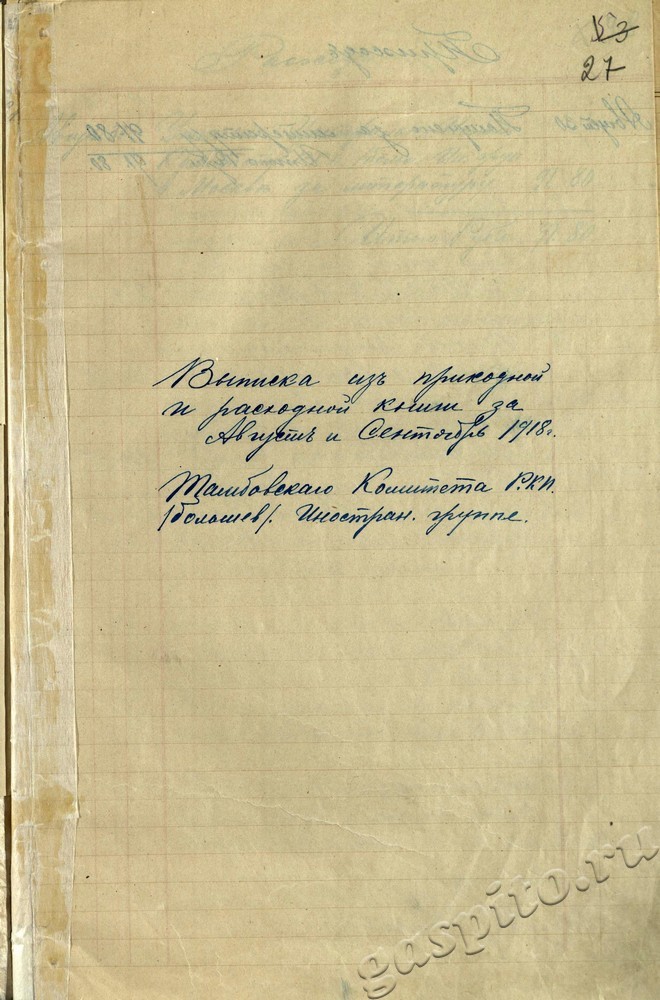 27
Выписка изъ приходной
и расходной книги за
Августъ и Сентябрь 1918г.
Тамбовскаго Комитета Р.К.П.
/большев/. Иностран. группе.
gaspito.ru